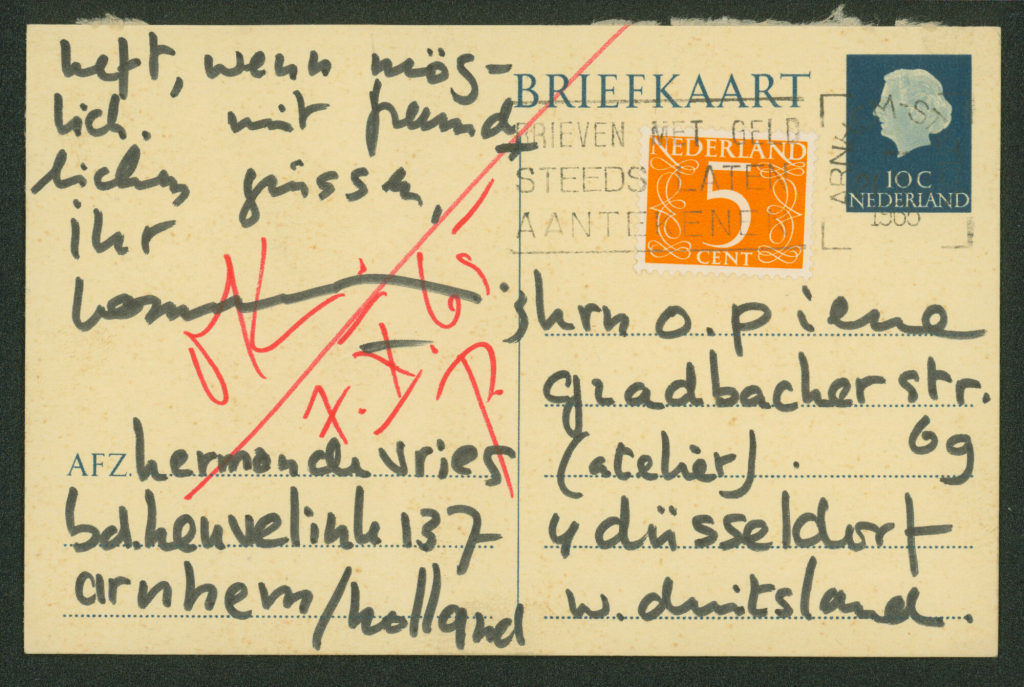 heft, wenn mög-
lich. mit freund-
lichen grüssen,
ihr
herman
OK
X.X.65
P.
AFZ. herman de vries
bd. heuvelink 137
arnhem/holland
BRIEFKAART
BRIEVEN MET GELD
STEEDS LATEN
AANTEKENEN
NEDERLAND
5
CENT
ARNHEM-ST
1965
10 C
NEDERLAND
hrn o. piene
gladbacher str.
69
(atelier).
4 düsseldorf
w. duitsland.